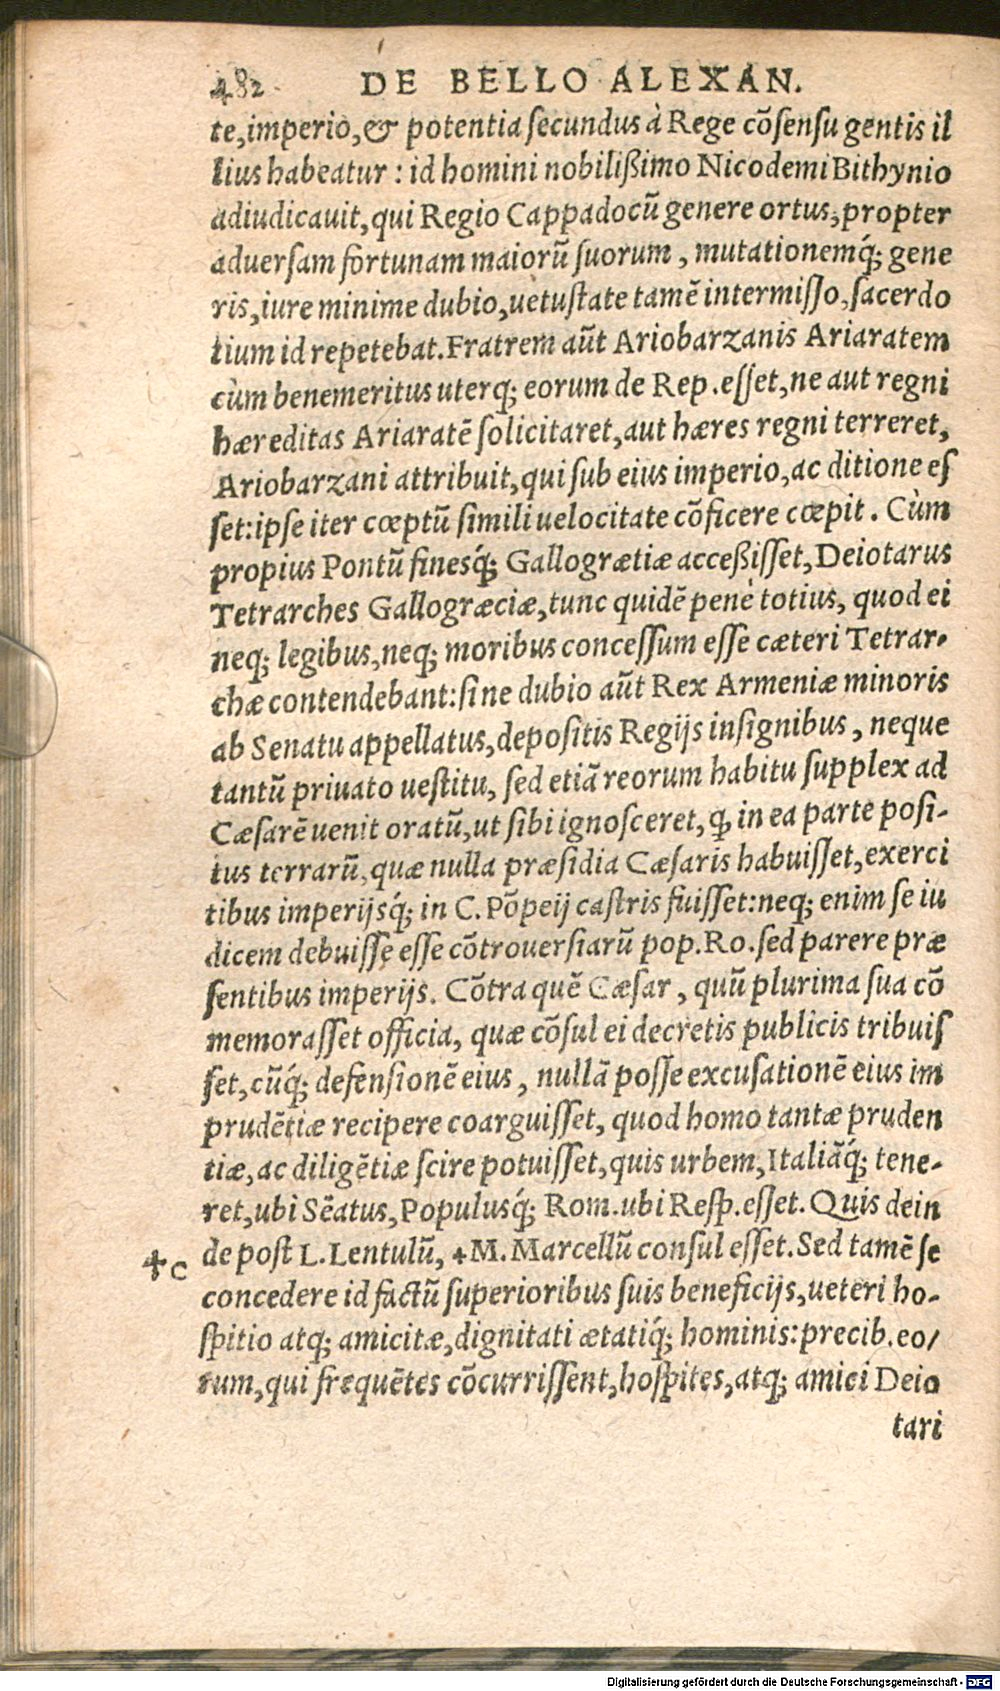 482
DE BELLO ALEXAN.
te, imperio, & potentia secundus à Rege cōsensu gentis il
lius habeatur : id homini nobilißimo Nicodemi Bithynio
adiudicauit, qui Regio Cappadocū genere ortus, propter
aduersam fortunam maiorū suorum, mutationemq́; gene
ris, iure minime dubio, uetustate tamē intermisso, sacerdo
tium id repetebat. Fratrem aūt Ariobarzanis Ariaratem
cùm benemeritus uterq; eorum de Rep. esset, ne aut regni
hæreditas Ariaratē solicitaret, aut hæres regni terreret,
Ariobarzani attribuit, qui sub eius imperio, ac ditione es
set: ipse iter cœptū simili uelocitate cōficere cœpit. Cùm
propius Pontū finesq́; Gallogrætiæ acceßisset, Deiotarus
Tetrarches Gallogræciæ, tunc quidē penè totius, quod ei
neq; legibus, neq; moribus concessum esse cæteri Tetrar-
chæ contendebant: sine dubio aūt Rex Armeniæ minoris
ab Senatu appellatus, depositis Regijs insignibus, neque
tantū priuato uestitu, sed etiā reorum habitu supplex ad
Cæsarē uenit oratū, ut sibi ignosceret, ꝙ in ea parte posi-
tus terrarū, quæ nulla præsidia Cæsaris habuisset, exerci
tibus imperijsq́; in C. Pōpeij castris fuisset: neq; enim se iu
dicem debuisse esse cōtrouersiarū pop. Ro. sed parere præ
sentibus imperijs. Cōtra quē Cæsar, quū plurima sua cō
memorasset officia, quæ cōsul ei decretis publicis tribuis
set, cūq́; defensionē eius, nullā posse excusationē eius im
prudētiæ recipere coarguisset, quod homo tantæ pruden
tiæ, ac diligētiæ scire potuisset, quis urbem, Italiāq́; tene-
ret, ubi Sēatus, Populusq́; Rom. ubi Resp. esset. Quis dein
4 c
de post L. Lentulū, 4 M. Marcellū consul esset. Sed tamē se
concedere id factū superioribus suis beneficijs, ueteri ho-
spitio atq; amicitæ, dignitati ætatiq́; hominis: precib. eo/
rum, qui frequētes cōcurrissent, hospites, atq; amici Deio
tari
Digitalisierung gefördert durch die Deutsche Forschungsgemeinschaft - DFG